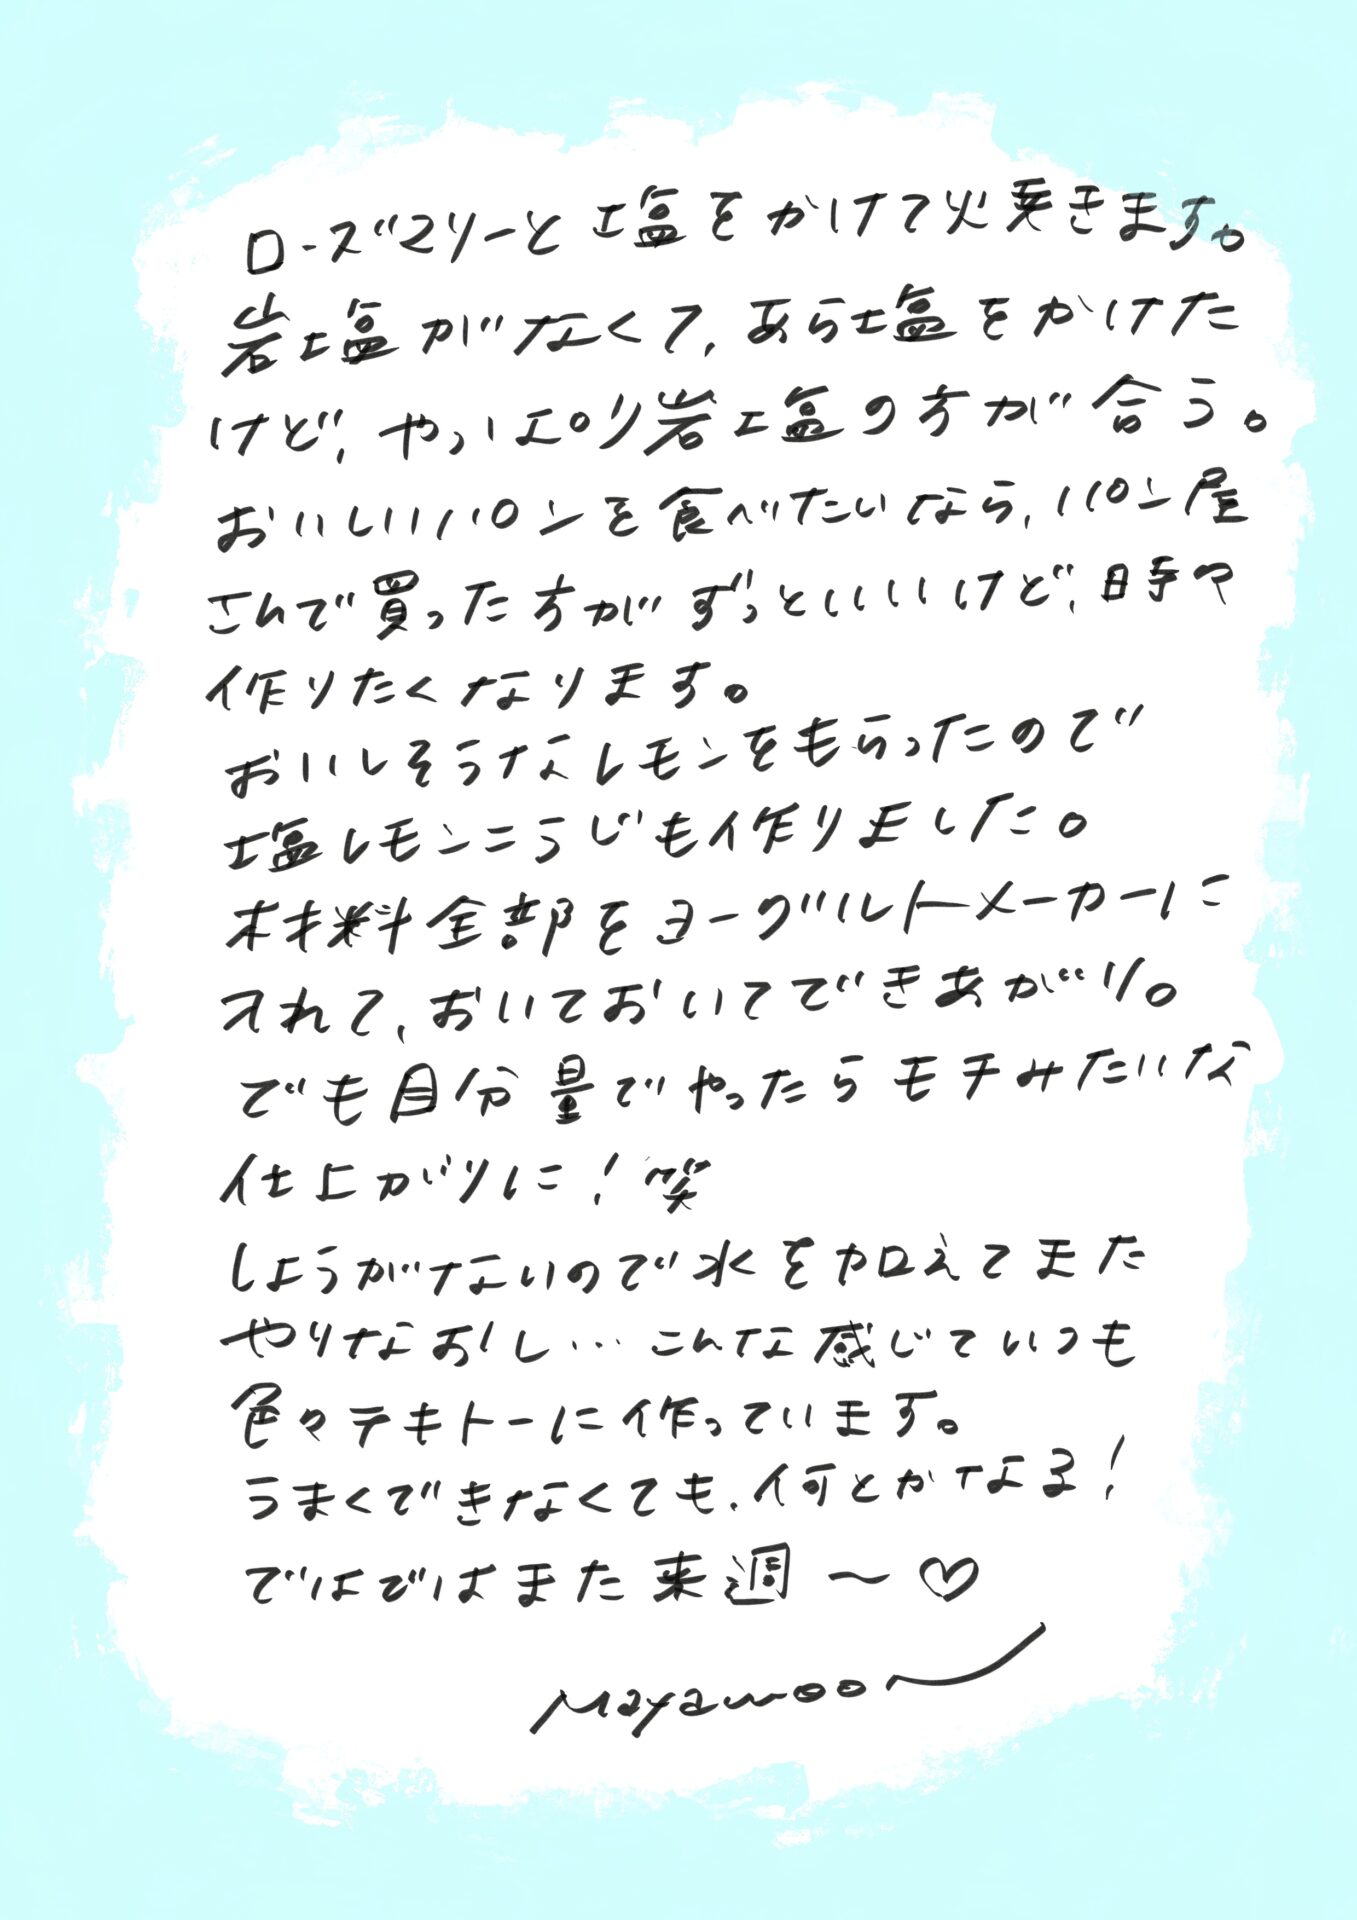 ローズマリーと塩をかけて焼きます。
岩塩がなくて、あら塩をかけた
けど、やっぱり岩塩の方が合う。
おいしいパンを食べたいなら、パン屋
さんで買った方がずっといいけど、時々
作りたくなります。
おいしそうなレモンをもらったので
塩レモンこうじも作りました。
材料全部をヨーグルトメーカーに
入れて、おいておいてできあがり。
でも目分量でやったらモチみたいな
仕上がりに！笑
しょうがないので水を加えてまた
やりなおし…こんな感じでいつも
色々テキトーに作っています。
うまくできなくても、何とかなる！
ではではまた来週〜♡
Mayamoon